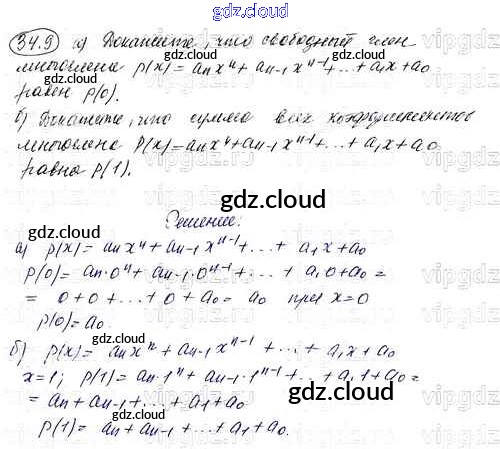 gdz.cloud
34.9 а) Докажите, что свободный член
многочлена p(x) = aₙxⁿ + aₙ₋₁xⁿ⁻¹ + ... + a₁x + a₀
равен p(0).
б) Докажите, что сумма всех коэффициентов
многочлена P(x) = aₙxⁿ + aₙ₋₁xⁿ⁻¹ + ... + a₁x + a₀
равна p(1).
gdz.cloud
Решение:
а) p(x) = aₙxⁿ + aₙ₋₁xⁿ⁻¹ + ... + a₁x + a₀
p(0) = aₙ·0ⁿ + aₙ₋₁·0ⁿ⁻¹ + ... + a₁0 + a₀ =
= 0 + 0 + ... + 0 + a₀ = a₀ при x = 0
p(0) = a₀.
gdz.cloud
б) p(x) = aₙxⁿ + aₙ₋₁xⁿ⁻¹ + ... + a₁x + a₀
x = 1; p(1) = aₙ·1ⁿ + aₙ₋₁·1ⁿ⁻¹ + ... + a₁1 + a₀ =
= aₙ + aₙ₋₁ + ... + a₁ + a₀
gdz.cloud
p(1) = aₙ + aₙ₋₁ + ... + a₁ + a₀.
gdz.cloud